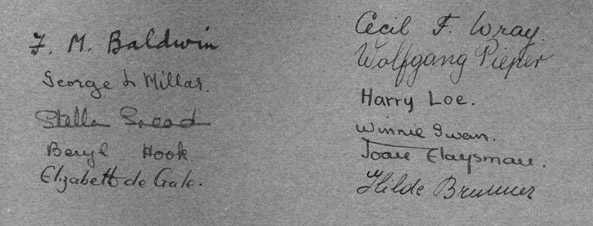 F. M. Baldwin
George L Millar.
Stella
Beryl Hook
Elizabeth de Gale.
Cecil F. Wray.
Wolfgang Pieper
Harry Loe.
Winnie Swan.
Joan
Hilde Brunner